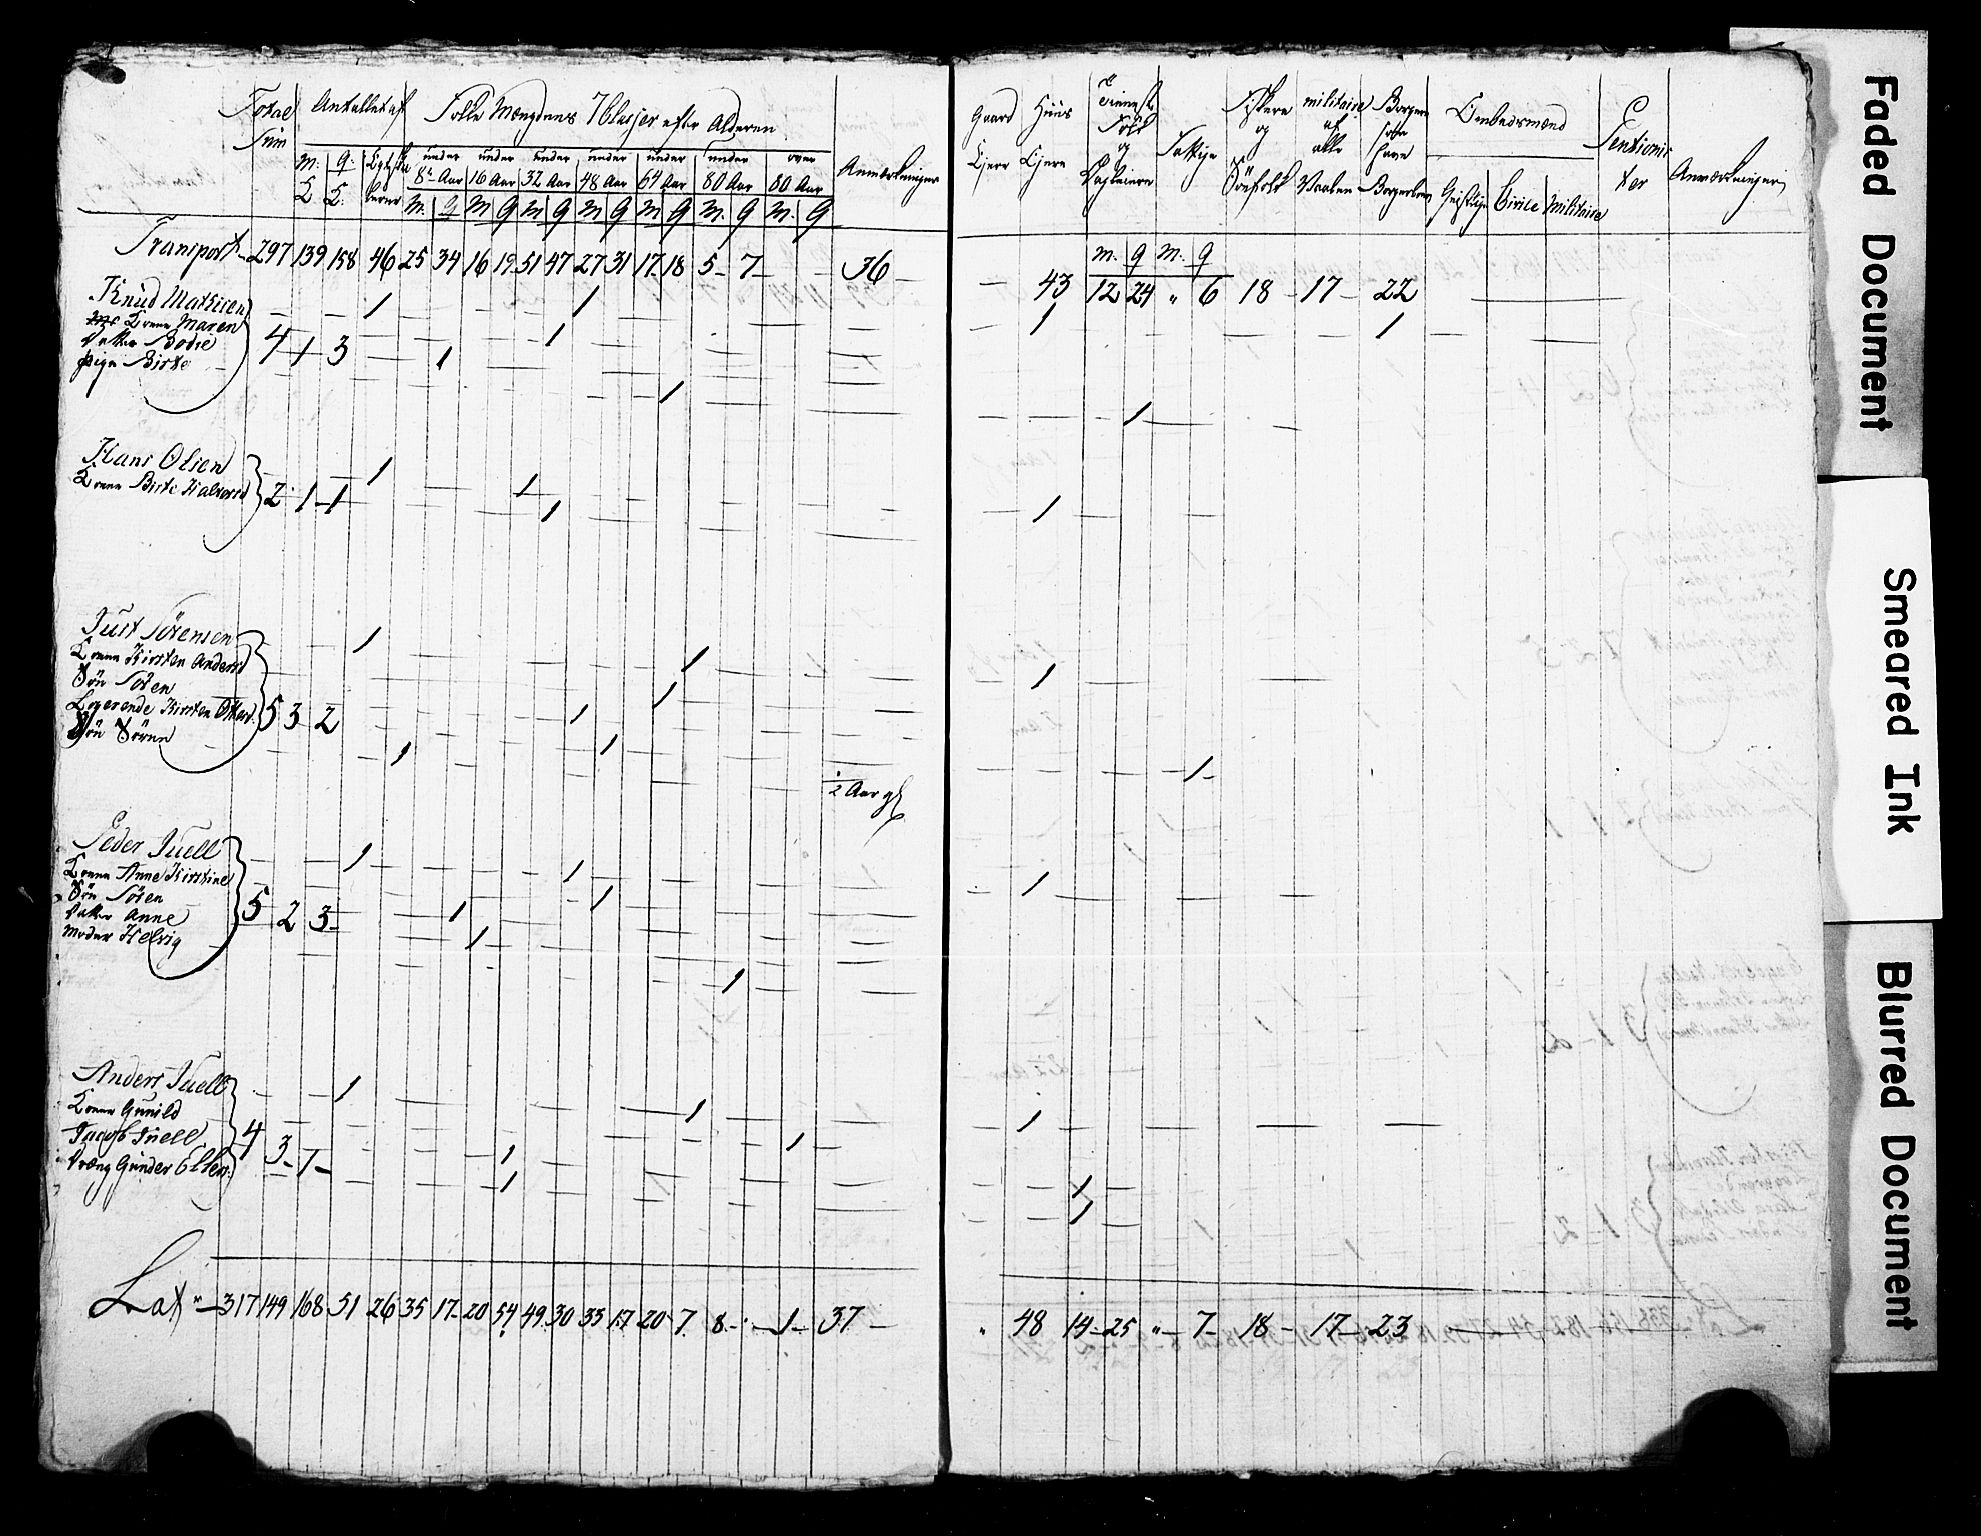 Total Sum
Antallet af
Folke Mængdens Klasser efter Alderen
Anmærkninger
M: K: Q: K:
under 8te Aar under 16 Aar under 32 Aar under 48 Aar under 64 Aar under 80 Aar over 80 Aar
M. Q M Q M Q M Q M Q M. Q M. Q
Transport 297 139 158 46 25 34 16 19 51 47 27 31 17 18 5 7 36
Knud Mathisen 1 1
Kone Maren 1
Datter Bodie 4 1 3 1
Pige Birte 1
Hans Olsen 1
Kone Birte Halvorsd 2 1 1 1
1
Just Sörensen 1
Kone Kirsten Andersd 1
Sön Sören 1
Logerende Kirsten 5 3 2 1
Sön Sören 1 1
½ Aar gl
Peder Juell 1
Kone Anne Kirstine 1
Sön Sören 1
Datter Anne 5 2 3 1
Moder Helvig 1
1
Anders Juell 1
Kone Gunild 1
Jacob Juell 4 3 1 1 1
Dræng Gunder Ellen: 1
Lat 317 149 168 51 26 35 17 20 54 49 30 33 17 20 7 8 1 37
Gaard Ejere
Huus Ejere
Tieneste Folk og
Fattige
Fiskere og Söefolk
militaire af alle Vaaben
Borgere som have Borgerbrev
Embedsmænd
Geistlige Civile Militaire
Pentionister
Anmærkninger
M. Q M. Q
43 12 24 " 6 18 17 22
1 1
1
1
1
1
1
1
1
1
" 48 14 25 " 7 18 17 23
Faded Document
Smeared Ink
Blurred Document